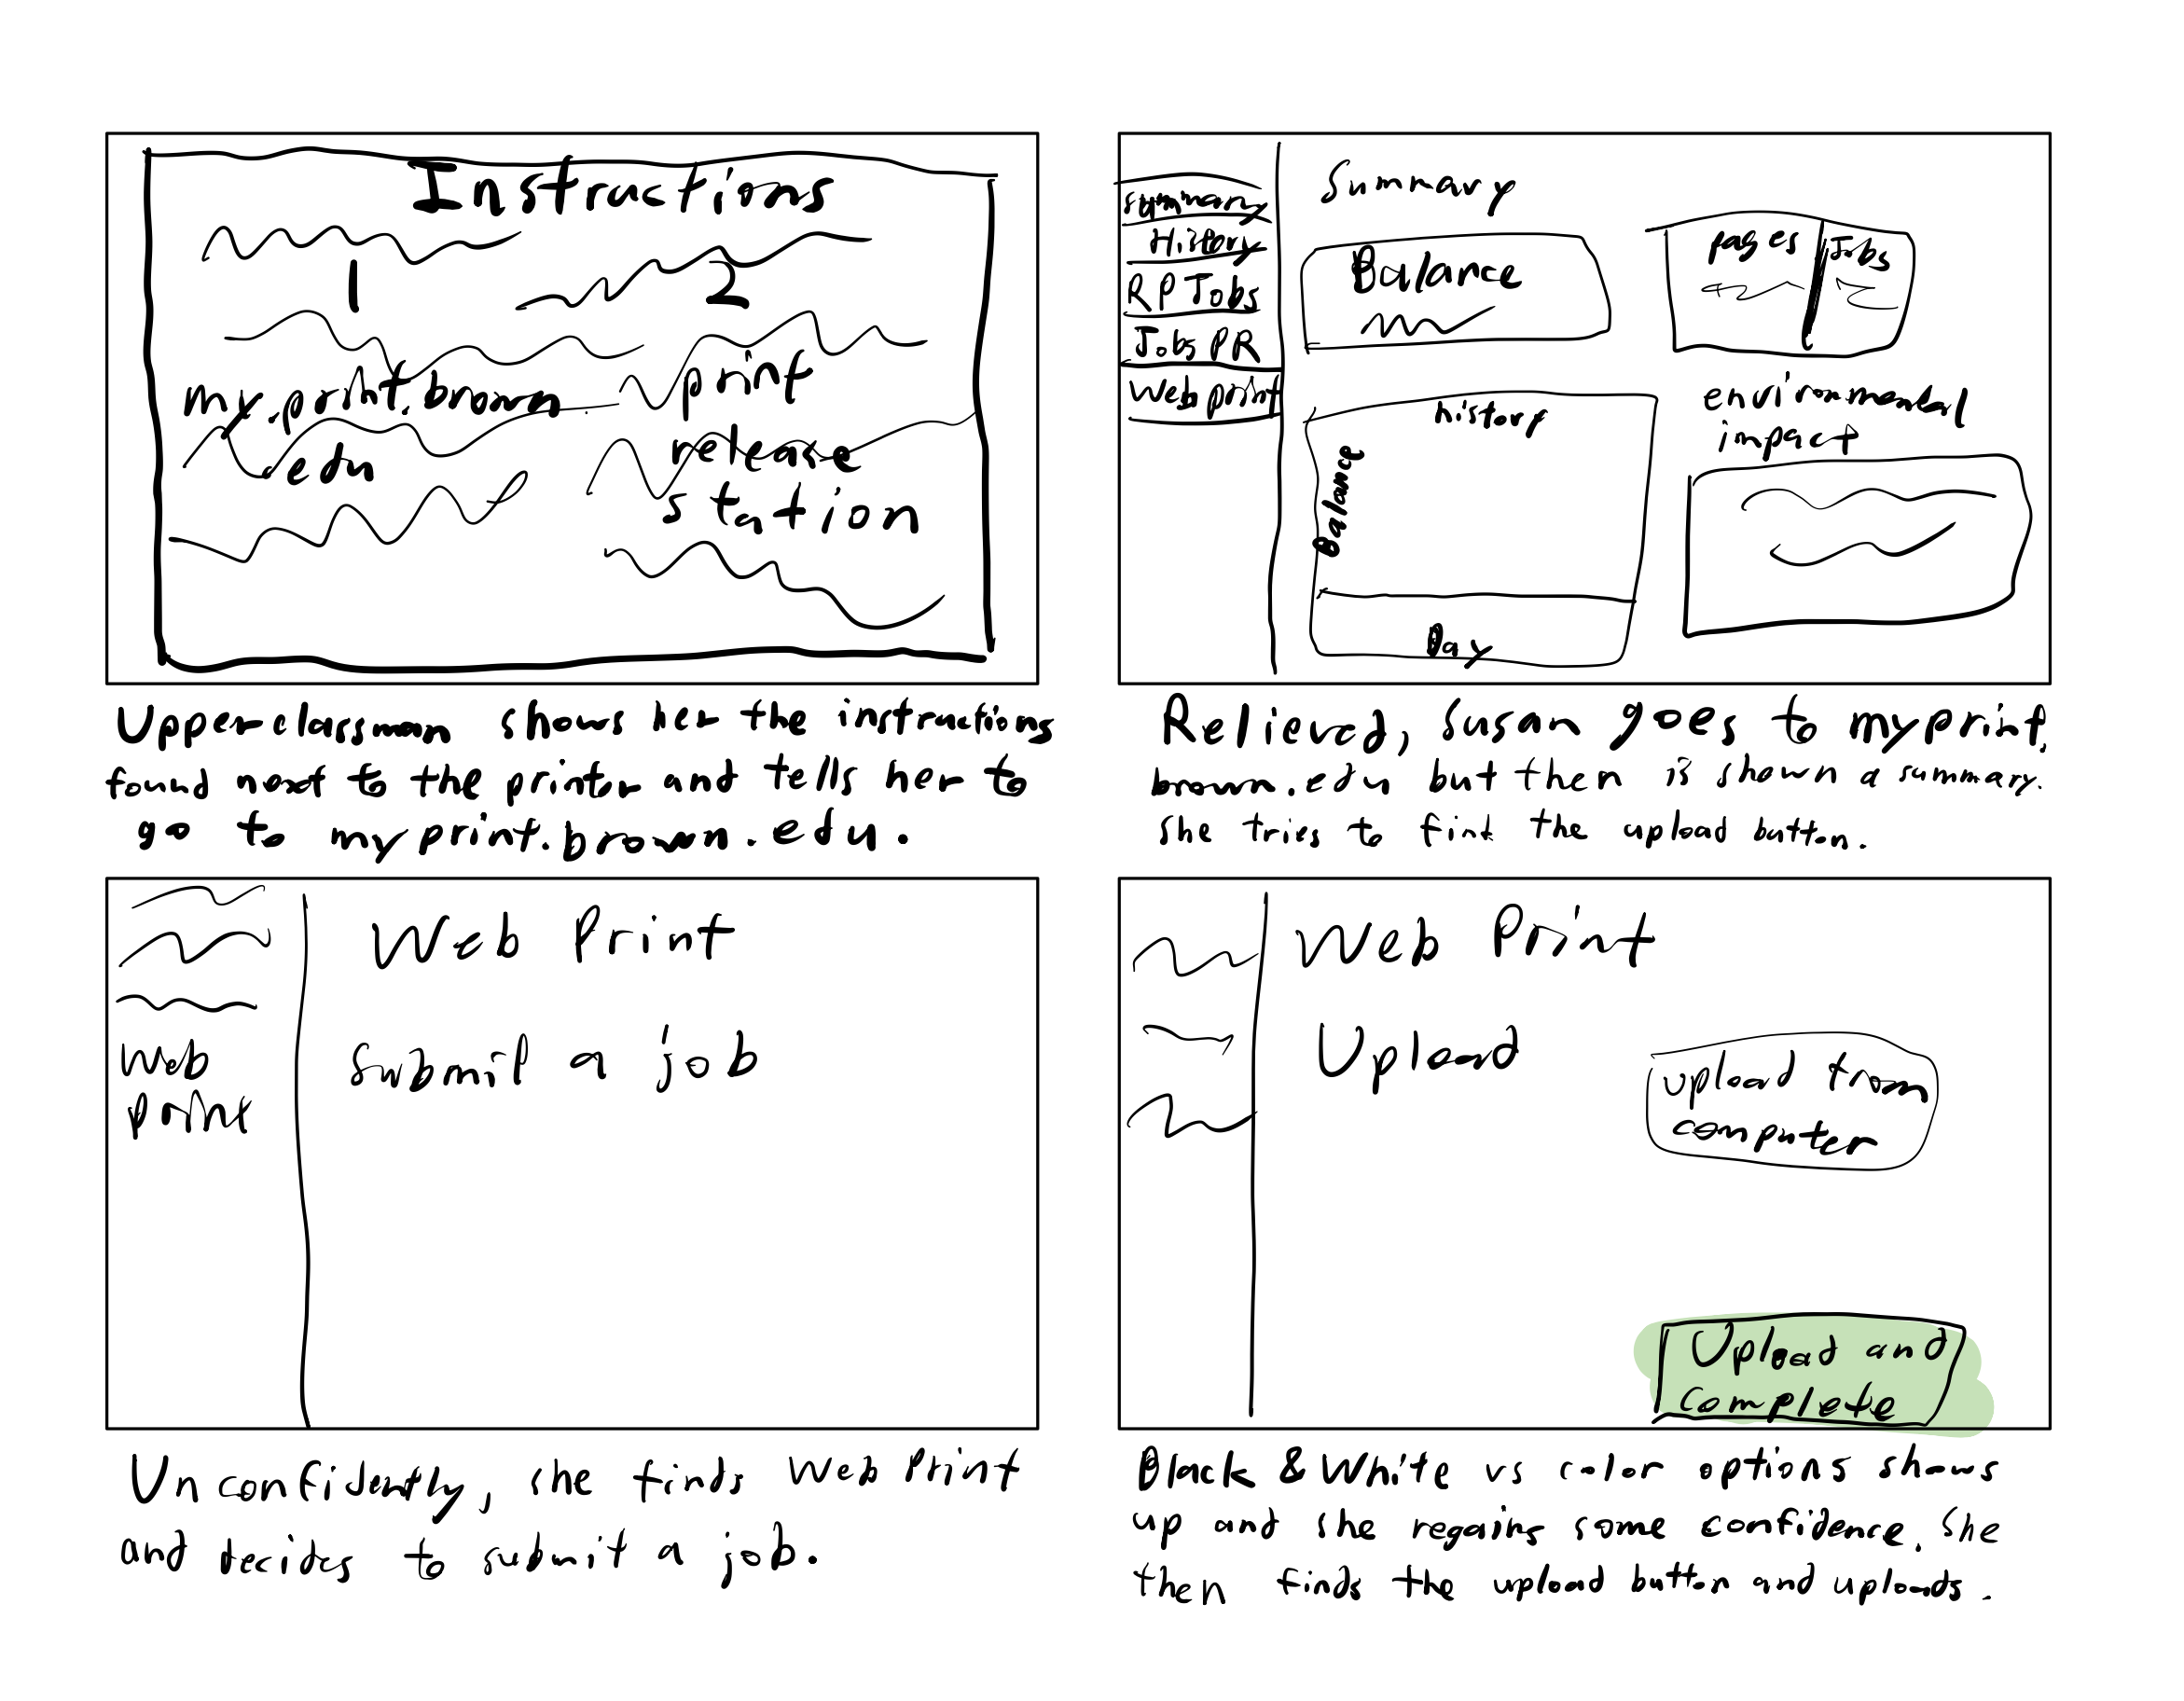 Instructions
1 2
my.print.brown
edu
print
release
station
Upperclassman shows her the instructions
found next to the printer and tells her to
go to myprint.brown.edu.
Summary
History
RP Jobs
Jobs PR
Web print
Summary
Balance
pages Jobs
history
Balance
Day
environmental
impact
Relieved, Susan goes to myprint.
brown.edu but then is shown a summary.
She tries to find the upload button.
Web
print
Web Print
Submit a job
Unconfidently, she finds Web Print
and decides to submit a job.
Web Print
Upload
upload from
computer
Upload and
complete
Black & White vs color options shows
up and she regains some confidence. She
then finds the upload button and uploads.